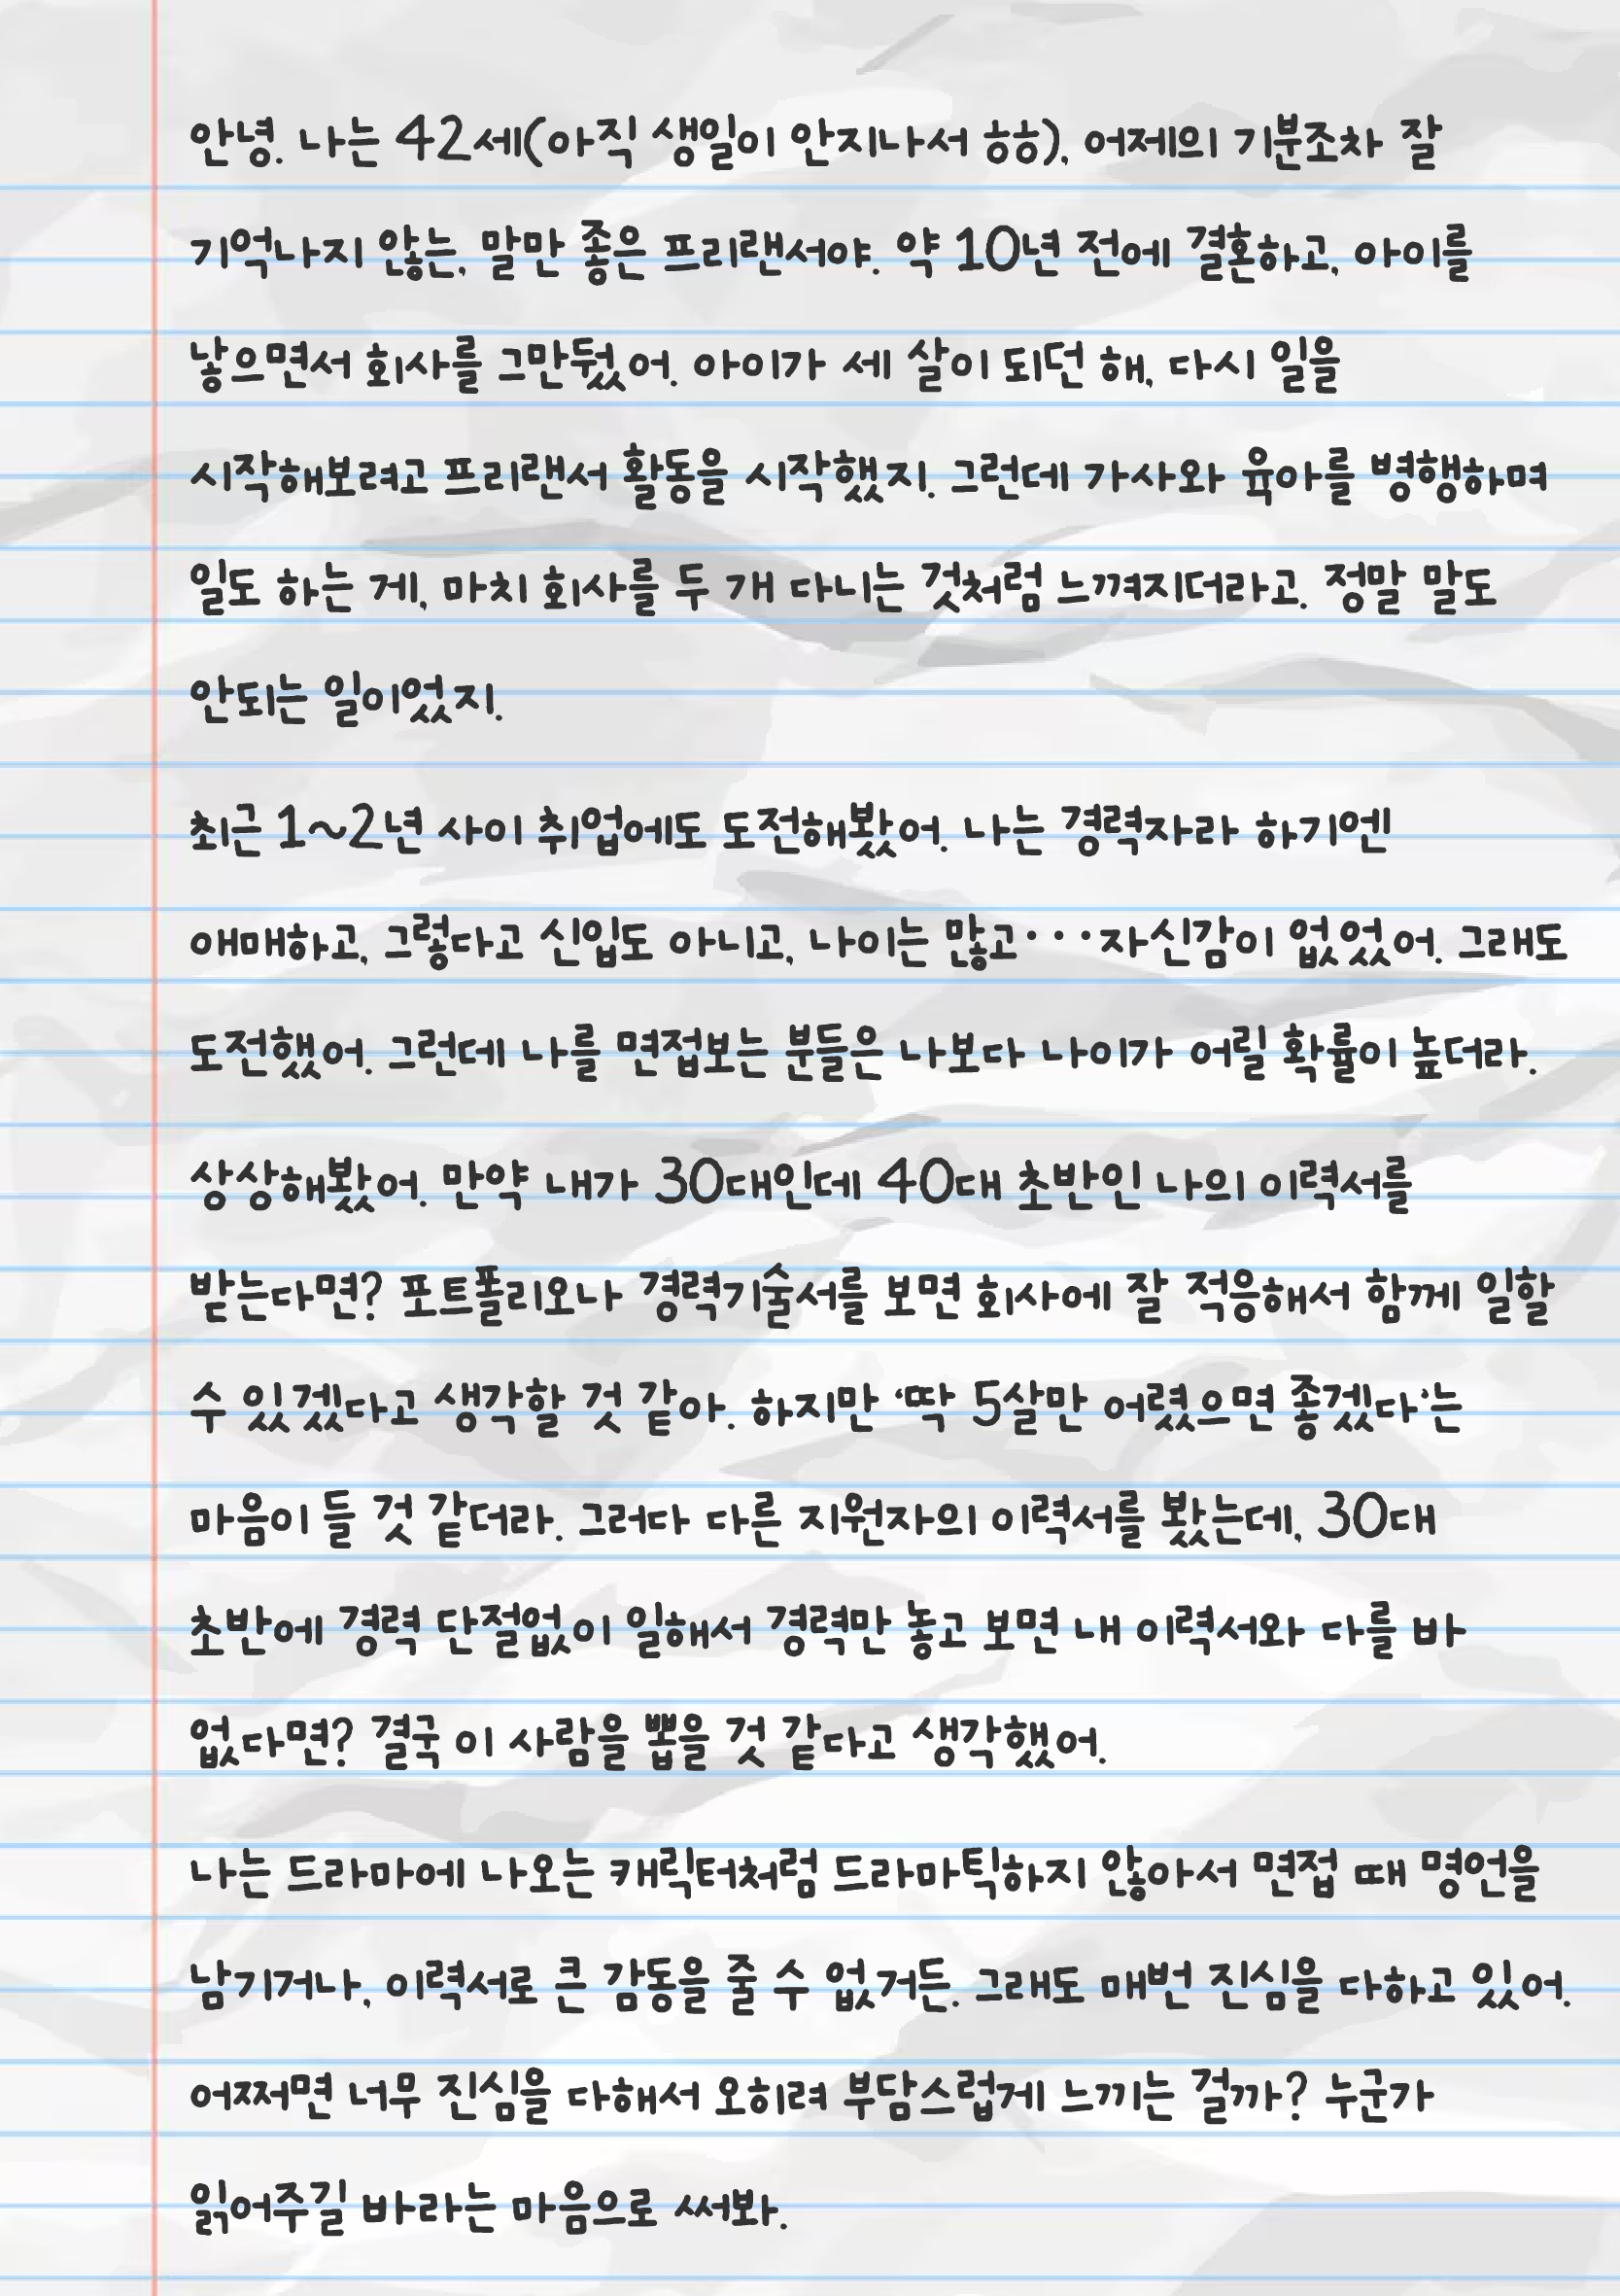 안녕. 나는 42세(아직 생일이 안지나서 흐흐), 어제의 기분조차 잘
기억나지 않는, 말만 좋은 프리랜서야. 약 10년 전에 결혼하고, 아이를
낳으면서 회사를 그만뒀어. 아이가 세 살이 되던 해, 다시 일을
시작해보려고 프리랜서 활동을 시작했지. 그런데 가사와 육아를 병행하며
일도 하는 게, 마치 회사를 두 개 다니는 것처럼 느껴지더라고. 정말 말도
안되는 일이었지.
최근 1~2년 사이 취업에도 도전해봤어. 나는 경력자라 하기엔
애매하고, 그렇다고 신입도 아니고, 나이는 많고···자신감이 없었어. 그래도
도전했어. 그런데 나를 면접보는 분들은 나보다 나이가 어릴 확률이 높더라.
상상해봤어. 만약 내가 30대인데 40대 초반인 나의 이력서를
받는다면? 포트폴리오나 경력기술서를 보면 회사에 잘 적응해서 함께 일할
수 있겠다고 생각할 것 같아. 하지만 '딱 5살만 어렸으면 좋겠다'는
마음이 들 것 같더라. 그러다 다른 지원자의 이력서를 봤는데, 30대
초반에 경력 단절없이 일해서 경력만 놓고 보면 내 이력서와 다를 바
없다면? 결국 이 사람을 뽑을 것 같다고 생각했어.
나는 드라마에 나오는 캐릭터처럼 드라마틱하지 않아서 면접 때 명언을
남기거나, 이력서로 큰 감동을 줄 수 없거든. 그래도 매번 진심을 다하고 있어.
어쩌면 너무 진심을 다해서 오히려 부담스럽게 느끼는 걸까? 누군가
읽어주길 바라는 마음으로 써봐.